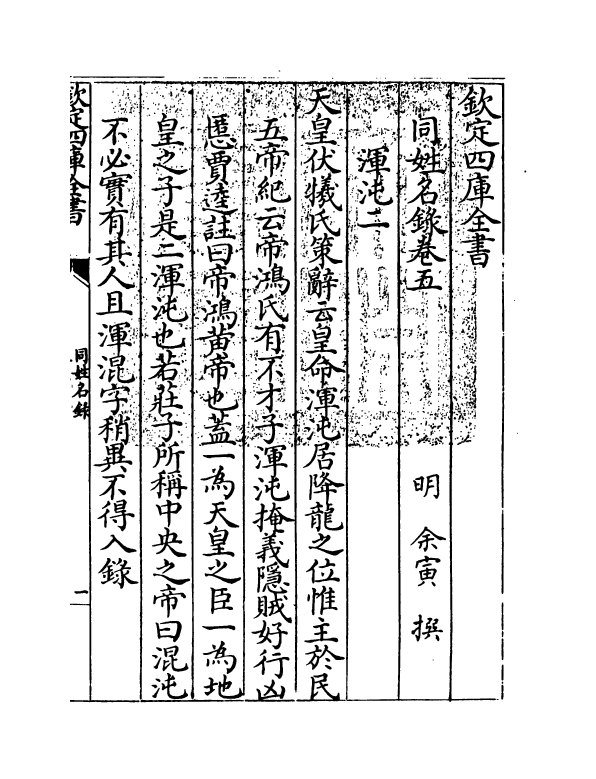 欽定四庫全書
同姓名錄卷五
明 余寅 撰
渾沌二
天皇伏犧氏策辭云皇命渾沌居降龍之位惟主於民
五帝紀云帝鴻氏有不才子渾沌掩義隱賊好行凶
慝賈逵註曰帝鴻黃帝也蓋一為天皇之臣一為地
皇之子是二渾沌也若莊子所稱中央之帝曰混沌
不必實有其人且渾混字稍異不得入錄
欽定四庫全書
同姓名錄